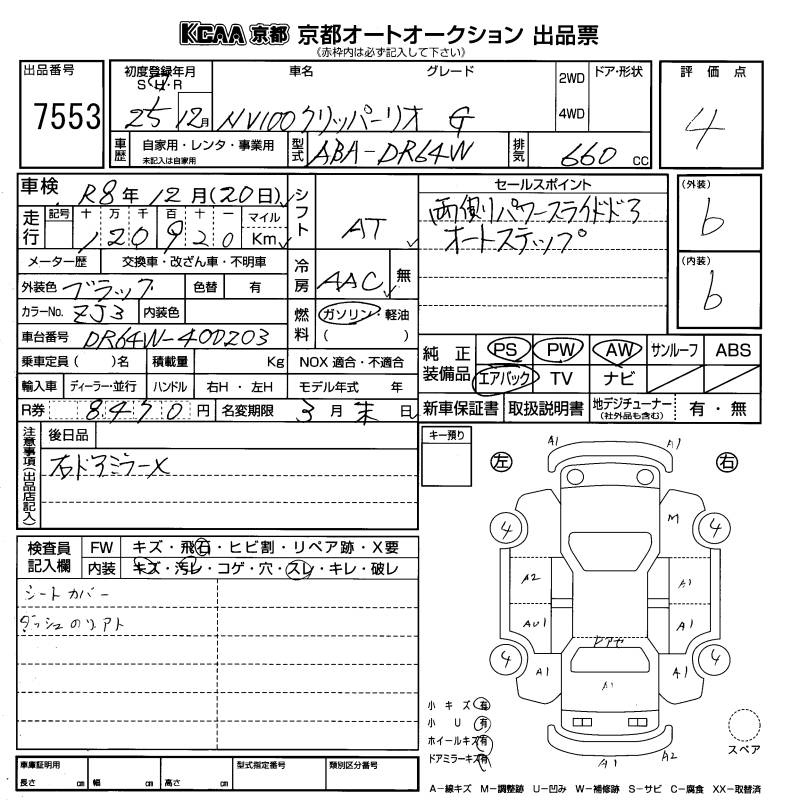 KCAA 京都 京都オートオークション 出品票
(赤枠内は必ず記入して下さい)
出品番号 7553
初度登録年月 車名 グレード 2WD ドア・形状
S・H・R 4WD
25 12月 NV100クリッパーリオ G
車歴 自家用・レンタ・事業用 未記入は自家用 型式 ABA-DR64W 排気 660 CC
評価点 4
車検 R8年 12月(20日) シフト AT
走行 記号 十 万 千 百 十 一 マイル Km
120920
メーター歴 交換車・改ざん車・不明車 冷房 AAC 無
外装色 ブラック 色替 有
カラーNo. ZJ3 内装色 燃料 ガソリン・軽油 ( )
車台番号 DR64W-400203
乗車定員( )名 積載量 Kg NOX 適合・不適合
輸入車 ディーラー・並行 ハンドル 右H・左H モデル年式 年
R券 8470円 名変期限 3月末日
セールスポイント
両側パワースライドドア
オートステップ
(外装) 6
(内装) 6
純正装備品 PS PW AW サンルーフ ABS
エアバック TV ナビ
新車保証書 取扱説明書 地デジチューナー (社外品も含む) 有・無
注意事項(出品店記入) 後日品
右ドアミラーX
キー預り
左 右
検査員記入欄 FW キズ・飛石・ヒビ割・リペア跡・X要
内装 キズ・汚レ・コゲ・穴・スレ・キレ・破レ
シートカバー
A1 A1
4 M 4
A2 A1
AU1 A1
4 A1 A1 4
A1
A1 A2
小キズ 有
小U 有
ホイールキズ 有
ドアミラーキズ 有
スペア
車庫証明用 型式指定番号 類別区分番号
長さ cm 幅 cm 高さ cm
A-線キズ M-調整跡 U-凹み W-補修跡 S-サビ C-腐食 XX-取替済